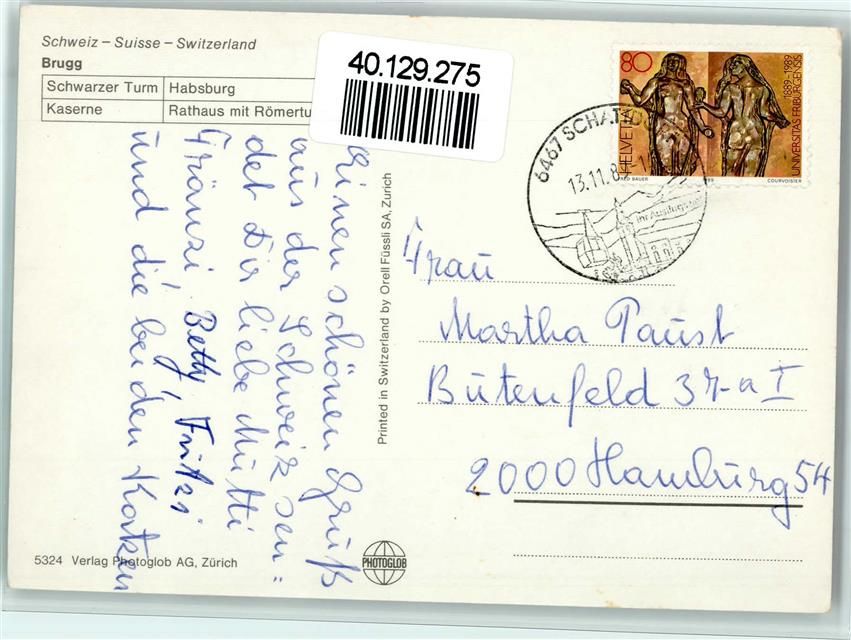 Schweiz – Suisse – Switzerland
Brugg
Schwarzer Turm Habsburg
Kaserne Rathaus mit Römertu
40.129.275
80
HELVETIA
1889-1989
UNIVERSITAS FRIBURGENSIS
COURVOISIER
6467 SCHATTDORF
13.11.8
Ihr Ausflugsziel
Einen schönen Gruß
aus der Schweiz sen=
det Dir liebe Mutti
Fränzi, Betty, Fritzi
und die beiden Katzen
Printed in Switzerland by Orell Füssli SA, Zürich
Frau
Martha Paust
Butenfeld 37-a I
2000 Hamburg 54
5324 Verlag Photoglob AG, Zürich
PHOTOGLOB